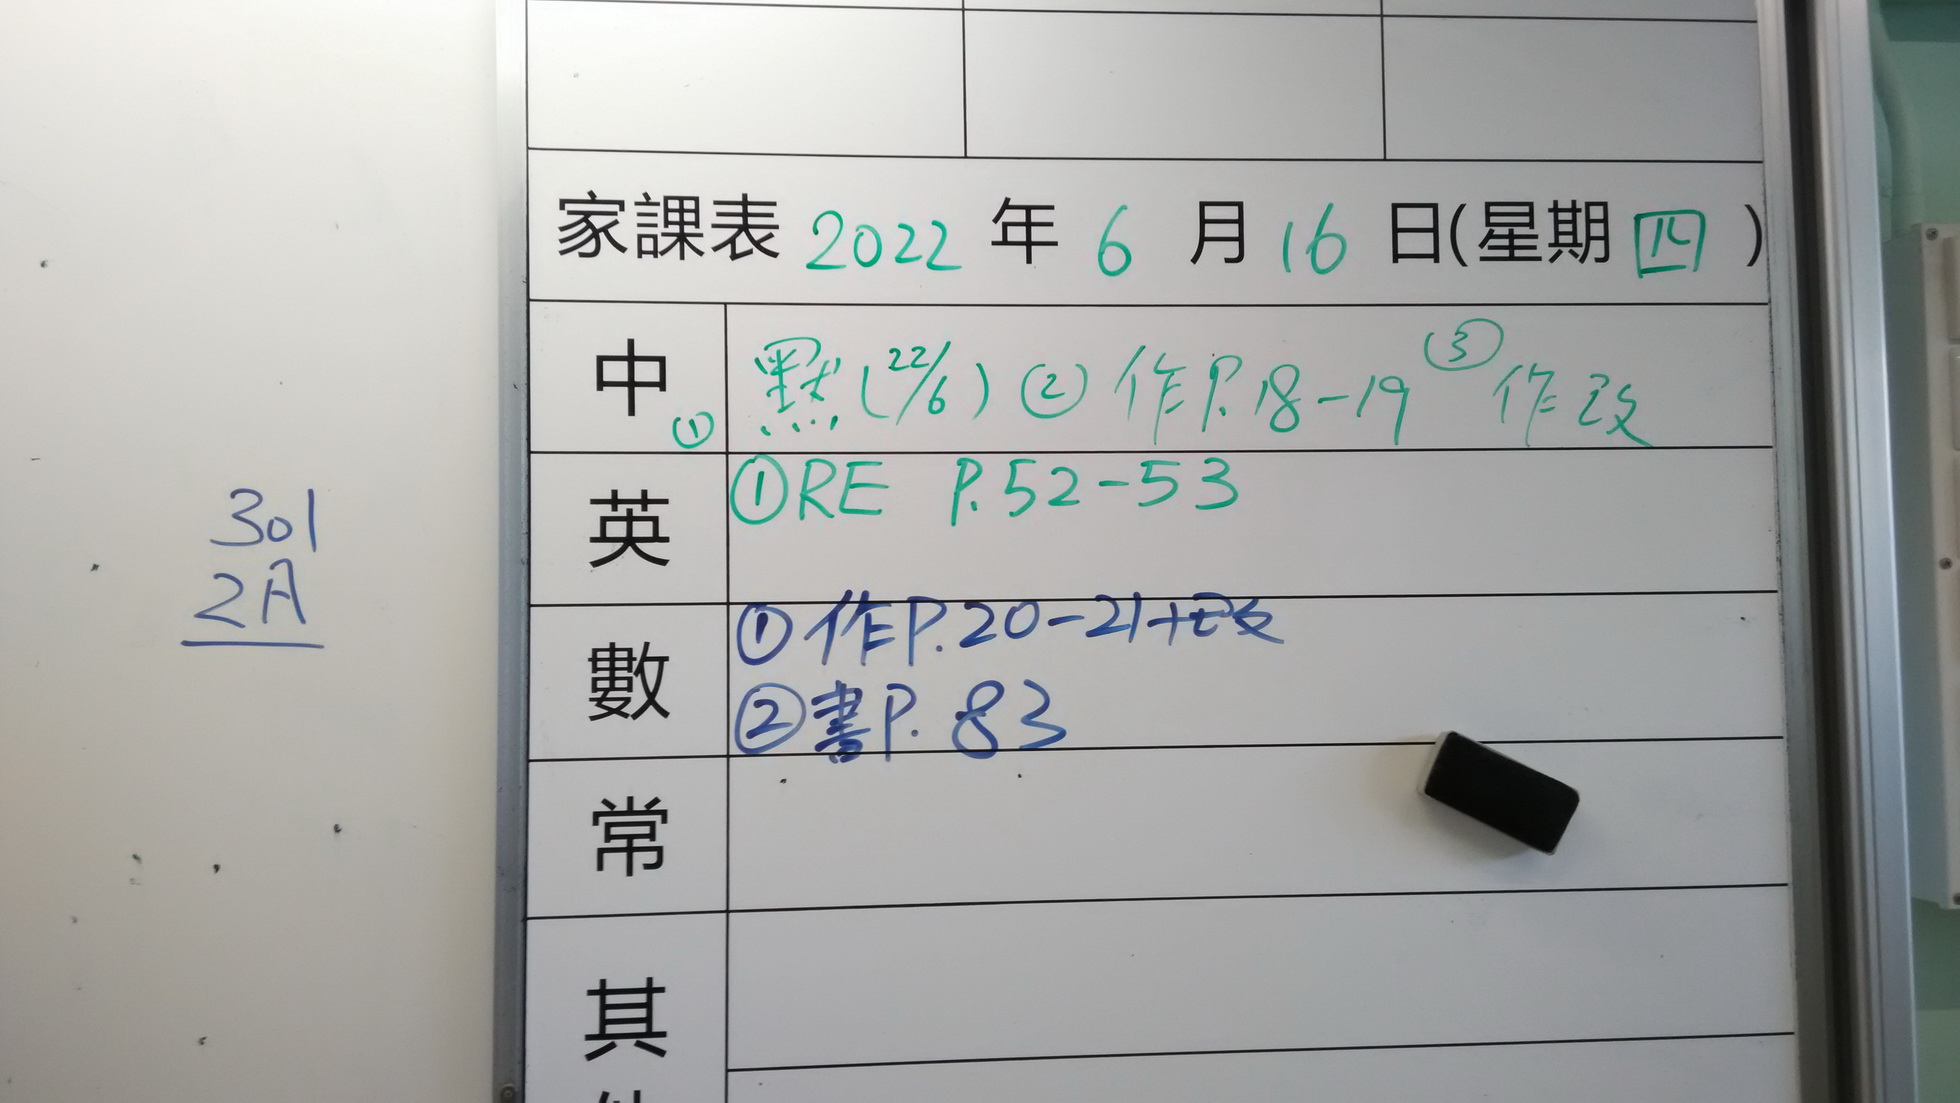 家課表 2022 年 6 月 16 日(星期四)
中 ① 默(22/6) ② 作P.18-19 ③ 作改
英 ①RE P.52-53
301
2A
數 ①作P.20-21+改
②書P.83
常
其